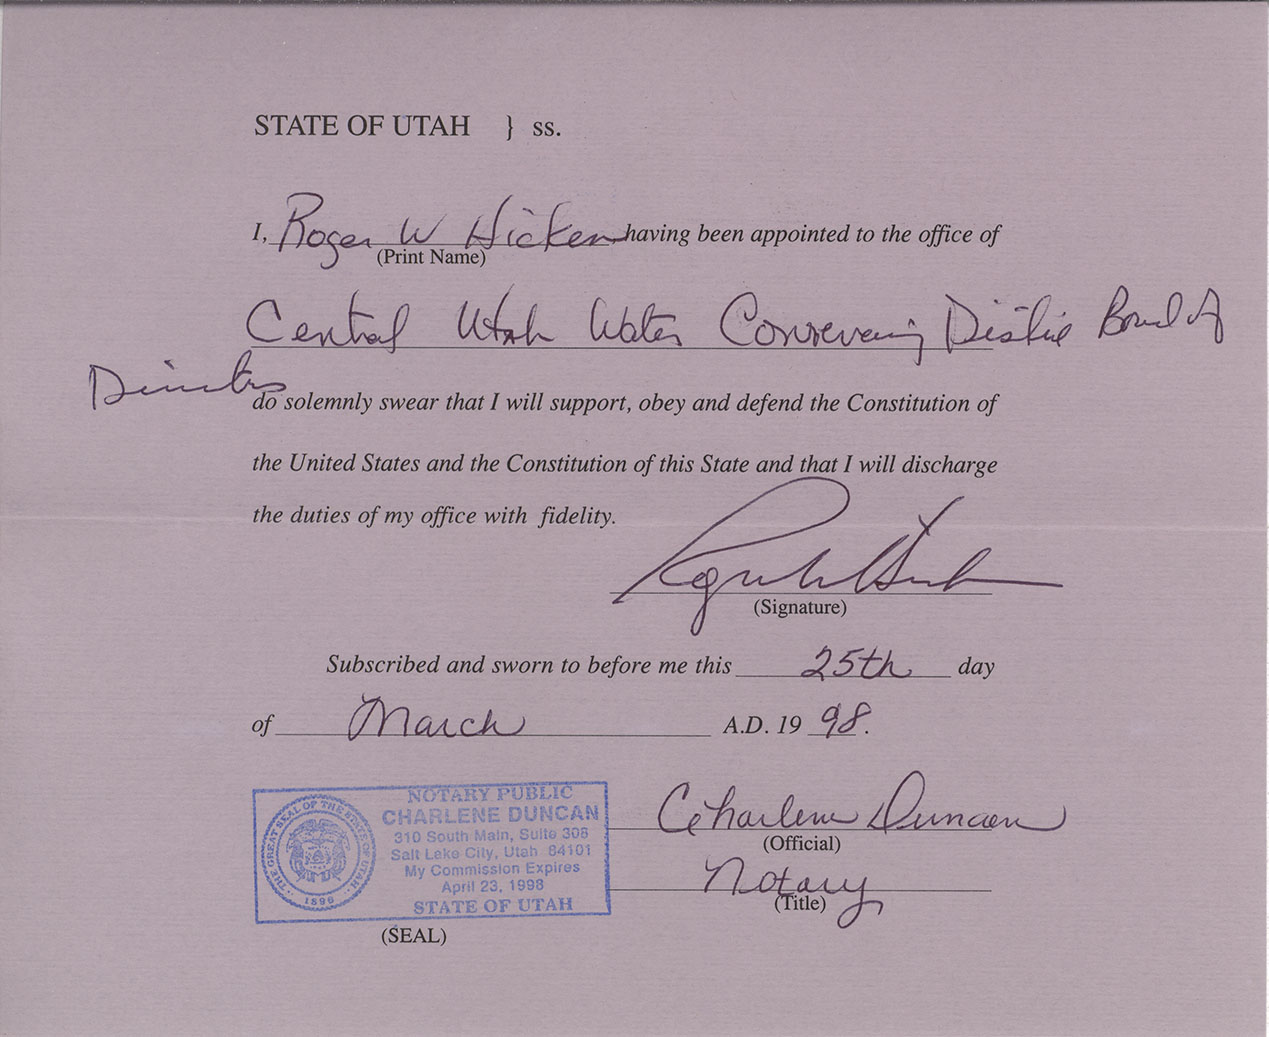 STATE OF UTAH } ss.
I, Roger W Hicken having been appointed to the office of
(Print Name)
Central Utah Water Board of
Directors
do solemnly swear that I will support, obey and defend the Constitution of
the United States and the Constitution of this State and that I will discharge
the duties of my office with fidelity.
(Signature)
Subscribed and sworn to before me this 25th day
of March A.D. 19 98.
NOTARY PUBLIC
CHARLENE DUNCAN
310 South Main, Suite 308
Salt Lake City, Utah 84101
My Commission Expires
April 23, 1998
STATE OF UTAH
THE GREAT SEAL OF THE STATE OF UTAH
1896
(SEAL)
Charlene Duncan
(Official)
Notary
(Title)